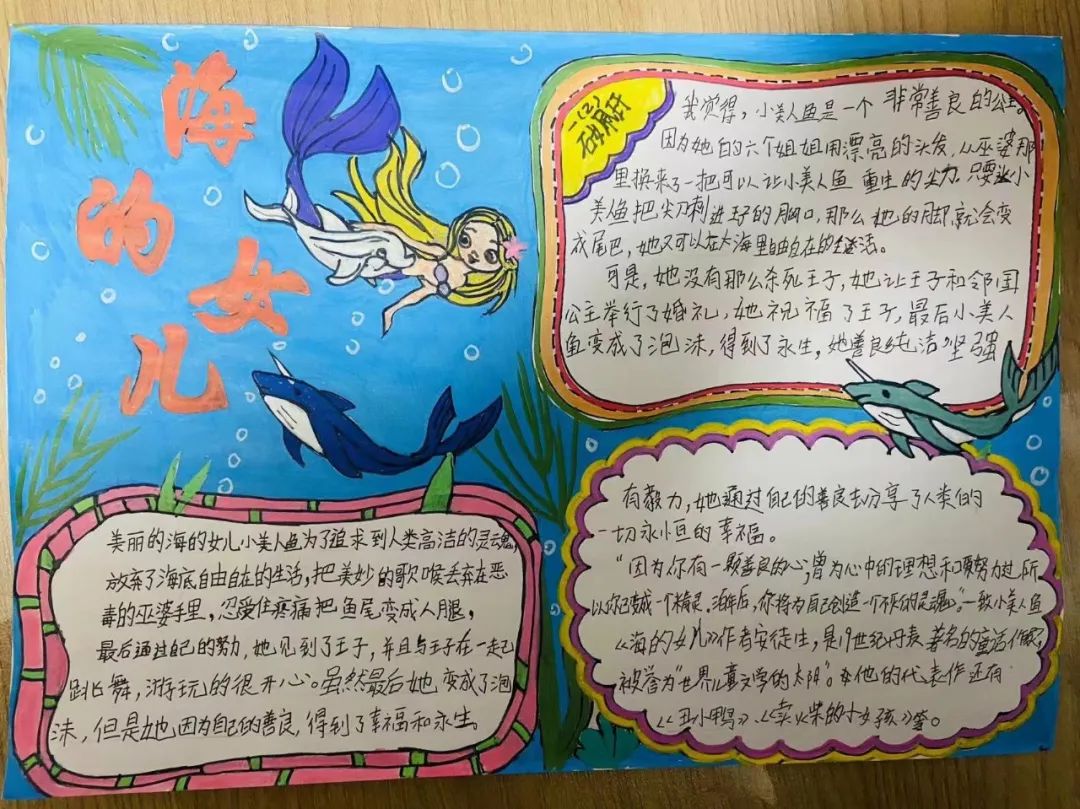 海的女儿
我觉得，小美人鱼是一个非常善良的公主。
因为她的六个姐姐用漂亮的头发，从巫婆那
里换来了一把可以让小美人鱼重生的尖刀.只要小
美鱼把尖刀刺进王子的胸口，那么她的脚就会变
成尾巴，她又可以在大海里自由自在的生活。
可是，她没有那么杀死王子，她让王子和邻国
公主举行了婚礼，她祝福了王子，最后小美人
鱼变成了泡沫，得到了永生，她善良纯洁坚强
美丽的海的女儿小美人鱼为了追求到人类高洁的灵魂，
放弃了海底自由自在的生活，把美妙的歌喉丢弃在恶
毒的巫婆手里，忍受住疼痛把鱼尾变成人腿，
最后通过自己的努力，她见到了王子，并且与王子在一起
跳舞，游玩的很开心。虽然最后她变成了泡
沫，但是她因为自己的善良，得到了幸福和永生。
有毅力，她通过自己的善良去分享了人类们的
一切永恒的幸福。
"因为你有一颗善良的心，曾为心中的理想和努力过，所
以你已变成一个精灵.百年后，你将为自己创造一个不朽的灵魂。"—致小美人鱼
《海的女儿》作者安徒生，是19世纪丹麦著名的童话作家，
被誉为"世界儿童文学的太阳"。他的代表作还有
《丑小鸭》、《卖火柴的小女孩》等。